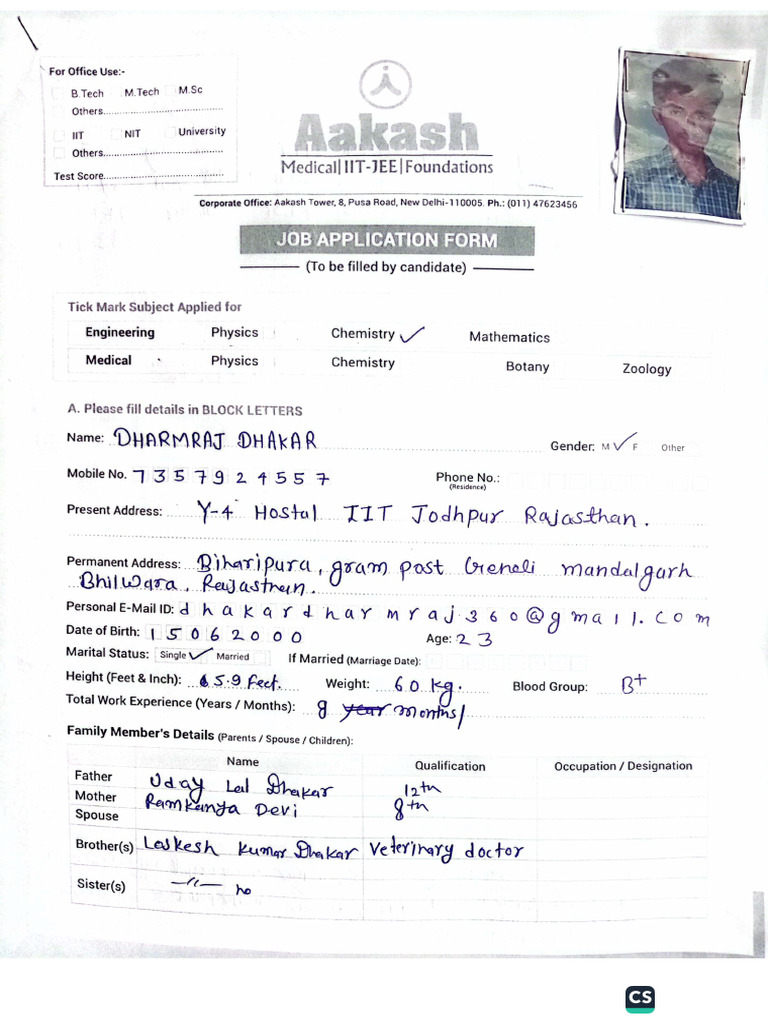 For Office Use:-
B.Tech M.Tech M.Sc
Others
IIT NIT University
Others
Test Score
Aakash
Medical|IIT-JEE|Foundations
Corporate Office: Aakash Tower, 8, Pusa Road, New Delhi-110005. Ph.: (011) 47623456
JOB APPLICATION FORM
(To be filled by candidate)
Tick Mark Subject Applied for
Engineering Physics Chemistry ✓ Mathematics
Medical Physics Chemistry Botany Zoology
A. Please fill details in BLOCK LETTERS
Name: DHARMRAJ DHAKAR Gender: M ✓ F Other
Mobile No. 7357924557 Phone No.:
(Residence)
Present Address: Y-4 Hostal IIT Jodhpur Rajasthan.
Permanent Address: Biharipura, gram post mandalgarh
Bhilwara, Rajasthan.
Personal E-Mail ID: dhakardharmraj360@gmail.com
Date of Birth: 15062000 Age: 23
Marital Status: Single ✓ Married If Married (Marriage Date):
Height (Feet & Inch): 5.9 feet. Weight: 60 kg. Blood Group: B+
Total Work Experience (Years / Months): 8 year months/
Family Member's Details (Parents / Spouse / Children):
Name Qualification Occupation / Designation
Father Uday Lal Dhakar 12th
Mother Ramkanya Devi 8th
Spouse
Brother(s) Lokesh Kumar Dhakar Veterinary doctor
Sister(s) no
CS